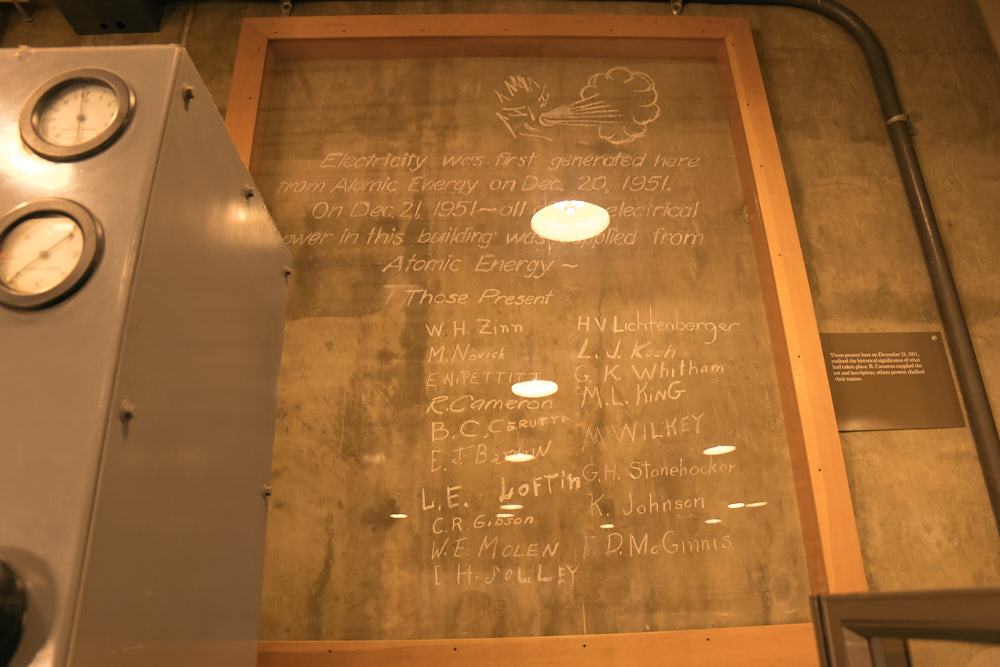 Electricity was first generated here
from Atomic Energy on Dec. 20, 1951.
On Dec. 21, 1951~all electrical
ower in this building was supplied from
Atomic Energy~
Those Present
W. H. Zinn
M. Novick
E N. PETTITT
R. Cameron
B. C. CERUTTI
E. J. Barton
L. E. LOFTIN
C. R. Gibson
W. E. MOLEN
H. JOLLEY
H V Lichtenberger
L. J. Koch
G. K. Whitham
M. L. KING
M WILKEY
G. H. Stonehocker
K. Johnson
D. McGinnis
Those present here on December 21, 1951,
realized the historical significance of what
had taken place. R. Cameron supplied the
art and inscription; others present chalked
their names.